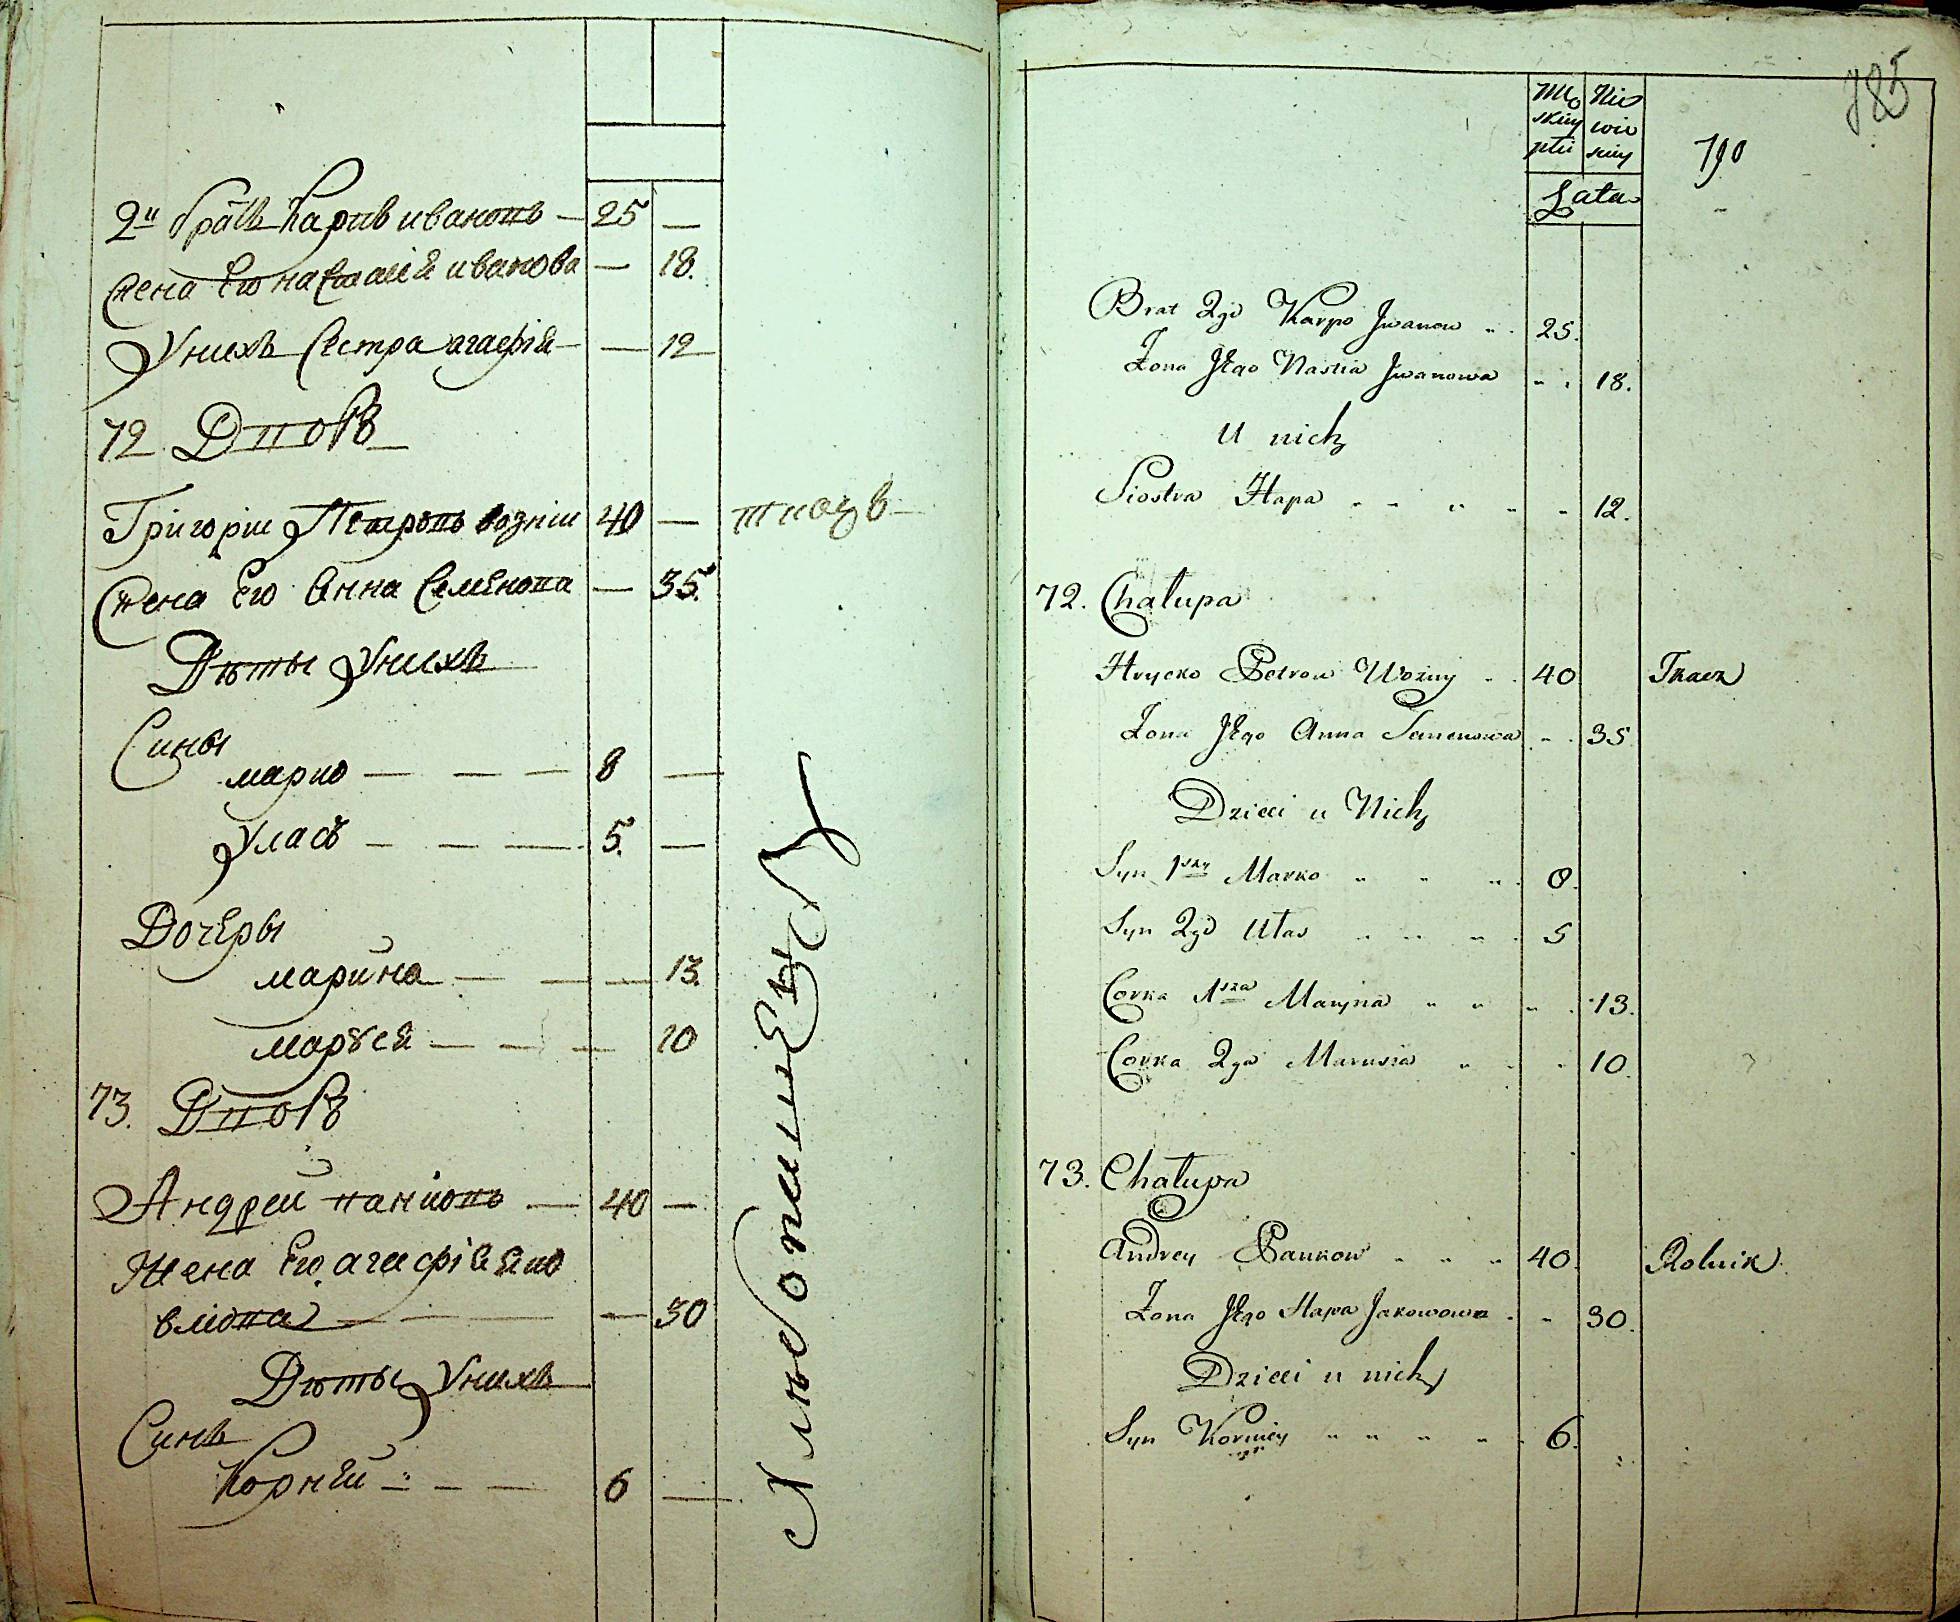 2й братъ Карпъ ивановъ — 25 —
Жена Его настасиѧ иванова — 18.
У нихъ Сестра агафиѧ — — 12
72 Дворъ
Григории Петровъ возний 40 — ткачъ
Жена Его Анна Семенова — 35.
Дѣты У нихъ
Сины
марко — — — 8 —
Уласъ — — — 5. —
Дочеры
марина — — — 13.
марусѧ — — — 10
73. Дворъ
Андрей панковъ — 40 —
Жена Его агафиѧ Яко
влюва — — — 30
Дѣты У нихъ
Синъ
Корнѣй — — 6 —
785
Mę
skiey
płci
Nie
wie
sciey
790
Lata
Brat 2gi Karpo Jwanow 25.
Żona Jego Nastia Jwanowa 18.
U nich
Siostra Hapa 12.
72. Chałupa
Hrycko Petrow Woźny 40 Tkacz
Żona Jego Anna Semenowa 35
Dzieci u Nich
Syn 1szy Marko 8.
Syn 2gi Ułas 5
Corka 1sza Maryna 13.
Corka 2ga Marusia 10.
73. Chałupa
Andrey Pankow 40. Rolnik
Żona Jego Hapa Jakowowa 30.
Dzieci u nich
Syn Korniey 6.